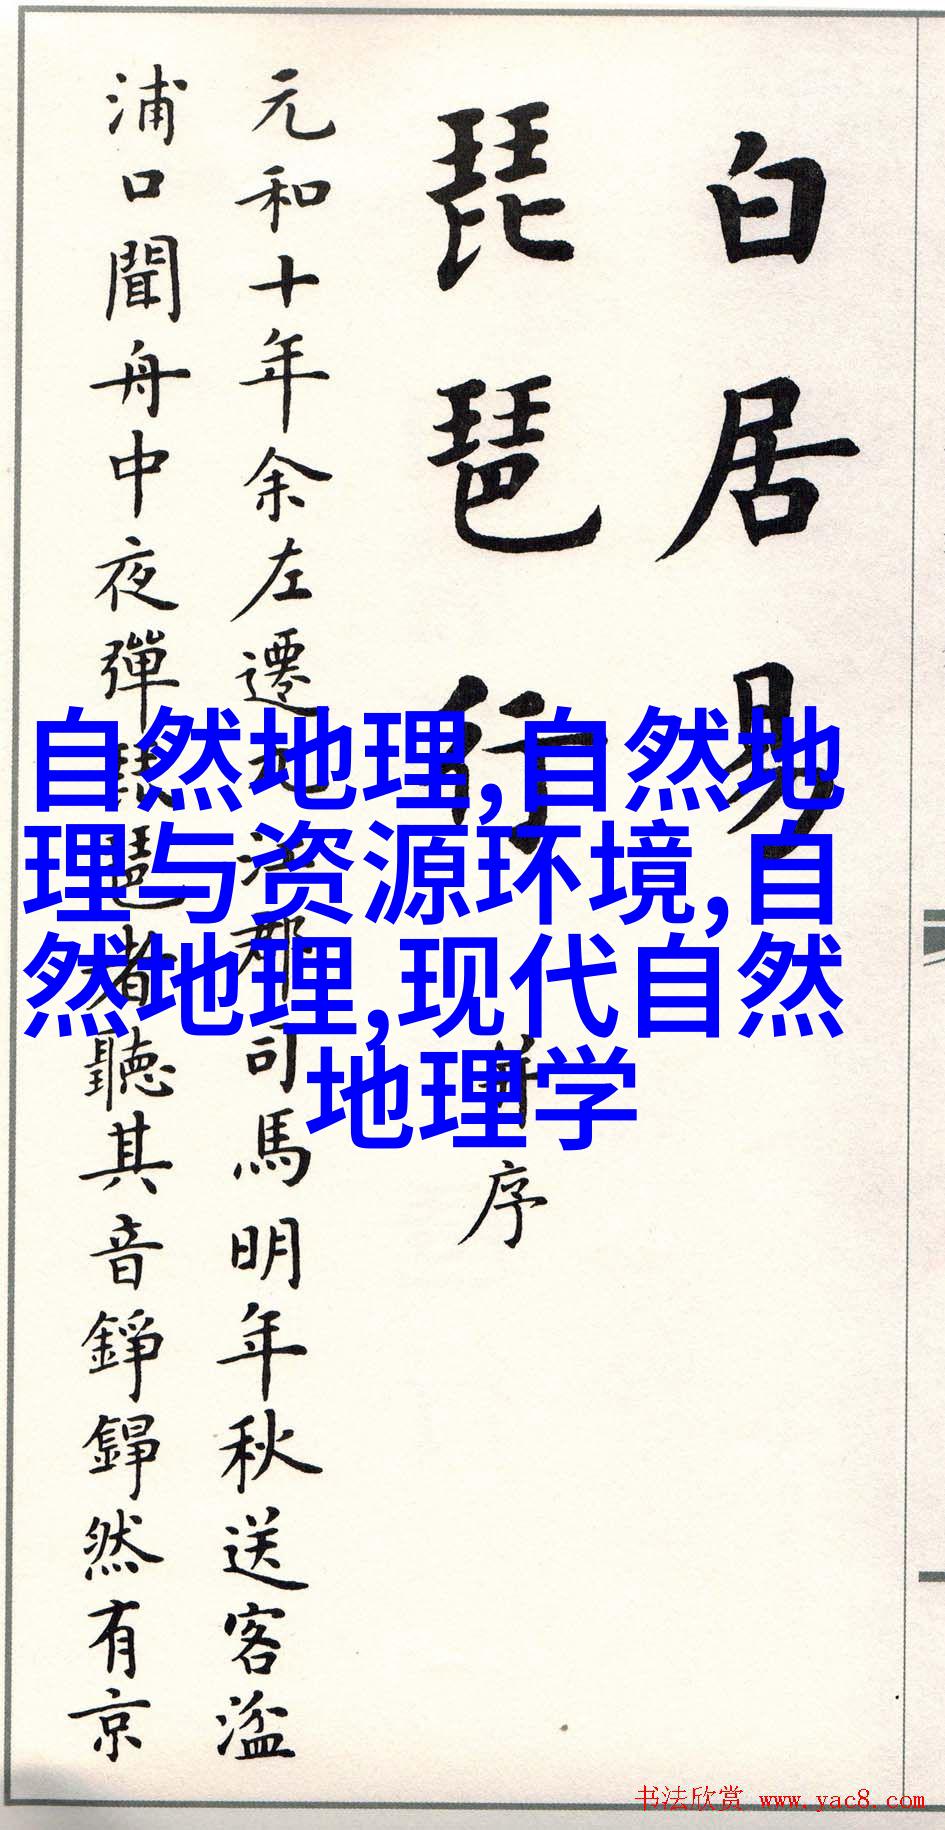 白居易
琵琶行 并序
元和十年余左遷九江郡司馬明年秋送客湓
浦口聞舟中夜彈琵琶者聽其音錚錚然有京
自然地理,自然地
理与资源环境,自
然地理,现代自然
地理学
书法欣赏 www.yac8.com